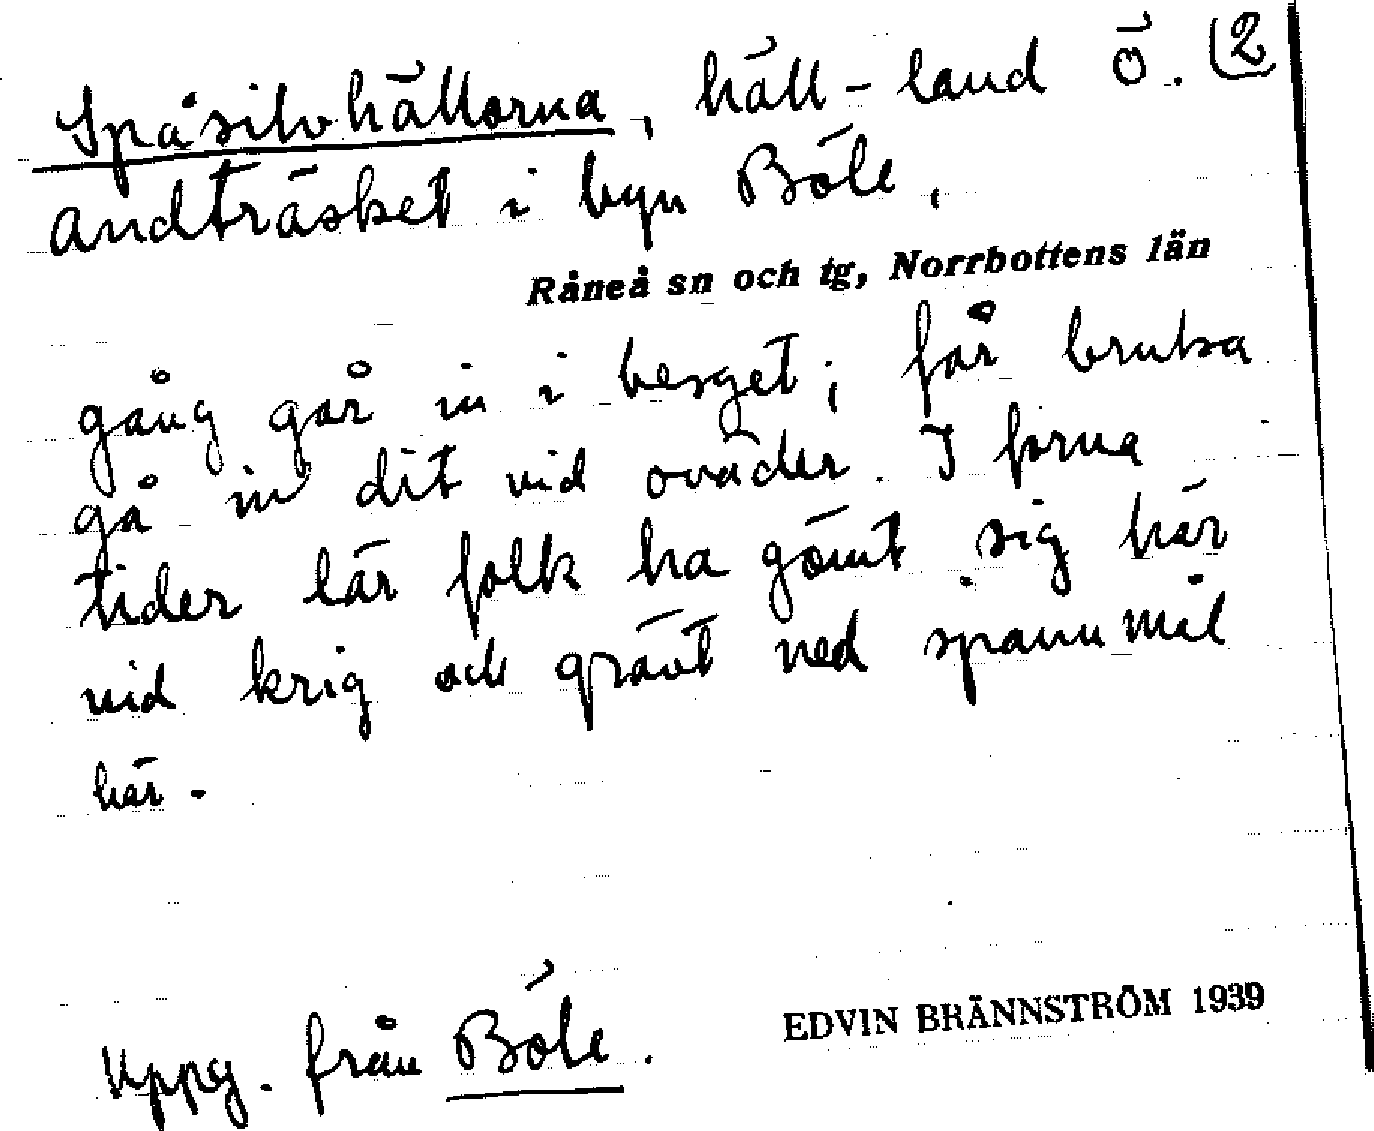 Spåsilvhällorna, häll-land ö. (2
Andträsket i byn Böle,
Råneå sn och tg, Norrbottens län
gång går in i berget; får bruka
gå in dit vid oväder. I forna
tider lär folk ha gömt sig här
vid krig och grävt ned spannmål
här.
Uppg. från Böle.
EDVIN BRÄNNSTRÖM 1939